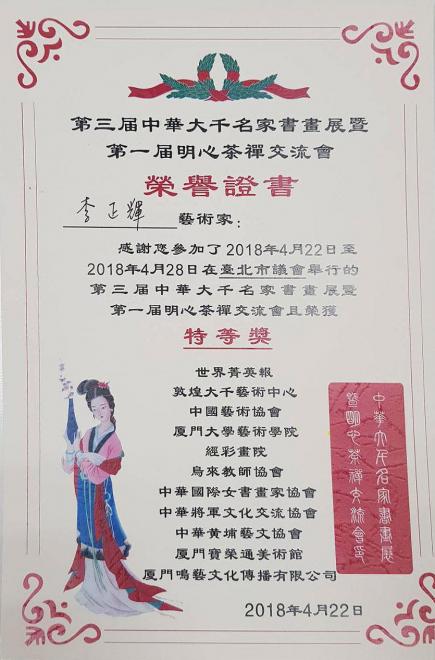 第三届中華大千名家書畫展暨
第一届明心茶禪交流會
榮譽證書
李正輝 藝術家：
感謝您參加了2018年4月22日至
2018年4月28日在臺北市議會舉行的
第三届中華大千名家書畫展暨
第一届明心茶禪交流會且榮獲
特等獎
世界菁英報
敦煌大千藝術中心
中國藝術協會
厦門大學藝術學院
經彩畫院
烏來教師協會
中華國際女書畫家協會
中華將軍文化交流協會
中華黃埔藝文協會
厦門寶榮通美術館
厦門鳴藝文化傳播有限公司
中華大千名家書畫展
暨明心茶禪交流會印
2018年4月22日